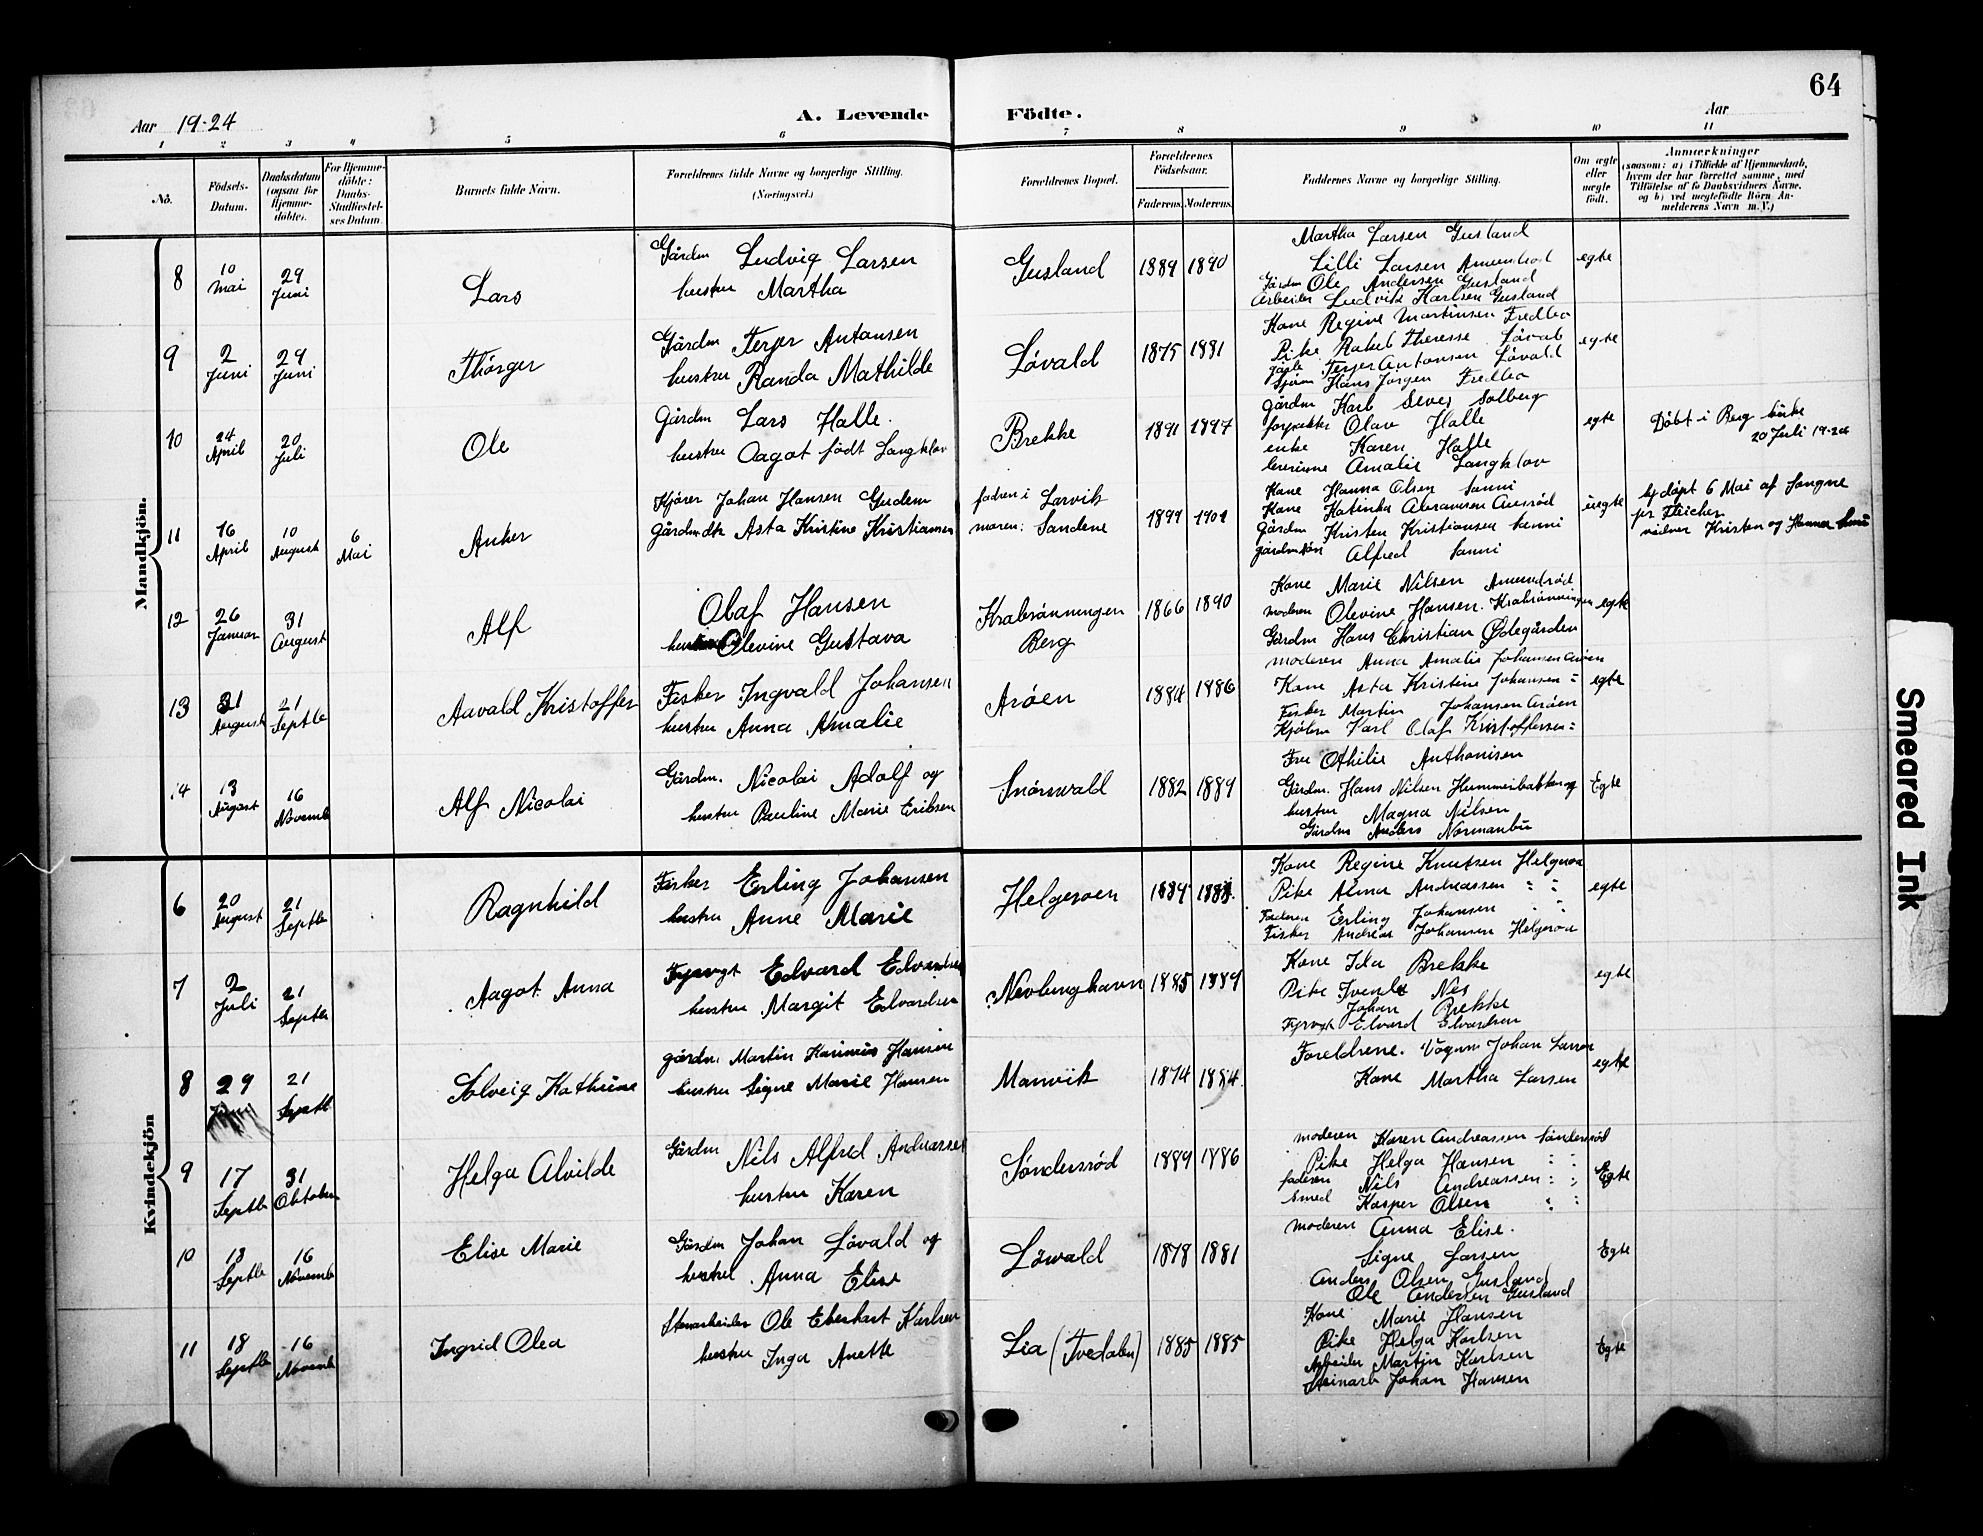 64
Aar 19-24
A. Levende Födte.
Aar
1 2 3 4 5 6 7 8 9 10 11
No.
Födsels-Datum.
Daabsdatum (ogsaa for Hjemme-döbte).
For Hjemme-döbte: Daabs-Stadfæstel-ses Datum.
Barnets fulde Navn.
Forældrenes fulde Navne og borgerlige Stilling.
(Næringsvei.)
Forældrenes Bopæl.
Forældrenes Födselsaar.
Faderens. Moderens.
Faddernes Navne og borgerlige Stilling.
Om ægte eller uægte födt.
Anmærkninger
(saasom: a) i Tilfælde af Hjemmedaab,
hvem der har forrettet samme, med
Tilföielse af to Daabsvidners Navne,
og b) ved uegtefödte Börn An-
melderens Navn m. V.)
Mandkjön.
8
10 Mai
29 Juni
Lars
Gårdm Ludvig Larsen
hustru Martha
Gusland
1889 1890
Martha Larsen Gusland
Lilli Larsen Amundrød
Gårdm Ole Andersen Gusland
Arbeider Ludvik Karlsen Gusland
egte
9
2 Juni
29 Juni
Thørger
Gårdm Terjer Antonsen
hustru Randa Mathilde
Løvald
1875 1881
Kone Regine Martinsen Fredbo
Pike Rakel Therese Løvald
Terjer Antonsen Løvald
Hans Jørgen Fredbo
egte
10
24 April
20 Juli
Ole
Gårdm Lars Halle.
hustru Aagot født Langklov
Brekke
1891 1897
Gårdm Karl Sever Solberg
forpakter Olav Halle
enke Karen Halle
Amalie Langklov
egte
Döbt i Berg kirke
20 Juli 19-24
11
16 April
10 August
6 Mai
Anker
Kjører Johan Hansen Gudem
Gårdmdtr Asta Kristine Kristiansen
fadren i Larvik
moren: Sandene
1899 1901
Kone Hanna Olsen Sanni
Kone Katinka Abramsen Auesrød
Gårdm Kristen Kristiansen Sanni
gårdmsøn Alfred Sanni
uegte
hj døpt 6 Mai af Sogne
pr Fleicher
vidner Kristen og Hanna Sanni
12
26 Januar
31 August
Alf
Olaf Hansen
hustru Olevine Gustava
Krabrønningen
Berg
1866 1890
Kone Marie Nilsen Amundrød
moderen Olevine Hansen. Krabrønningen
Gårdm Hans Christian Ødegården
egte
13
31 August
21 Septbr
Aavald Kristoffer
Fisker Ingvald Johansen
hustru Anna Amalie
Arøen
1884 1886
moderen Anna Amalie Johansen Arøen
Kone Asta Kristine Johansen :
Fisker Martin Johansen Arøen
Karl Olaf Kristoffersen :
egte
14
13 August
16 Novemb
Alf Nicolai
Gårdm. Nicolai Adolf og
hustru Pauline Marie Eriksen
Snörnvald
1882 1889
Fru Othilie Anthonisen
Gårdm. Hans Nilsen Hummerbakken og
hustru Magna Nilsen
Gårdm Anders Normanbu
Egte
Kvindekjön
6
20 August
21 Septbr
Ragnhild
Fisker Erling Johansen
hustru Anne Marie
Helgeroen
Kone Regine Knutsen Helgeroa
Pike Alma Andreassen " "
Faderen Erling Johansen " "
Fisker Andreas Johansen Helgeroa
egte
7
2 Juli
21 Septbr
Aagot Anna
Fyrvogt Edvard Edvardsen
hustru Margit Edvardsen
Nevlunghavn
1885 1889
Kone Ida Brekke
Pike Svenke Nes
Johan Brekke
Fyrvogt Edvard Edvardsen
egte
8
29
21 Septb
Solveig Kathrine
gårdm Martin Karinius Hansen
hustru Signe Marie Hansen
Manvik
1874 1884
Foreldrene. Vogm. Johan Larsen
Kone Martha Larsen
egte
9
17 Septbr
31 Oktober
Helga Alvilde
Gårdm Nils Alfred Andreassen
hustru Karen
Søndersrød
1889 1886
moderen Karen Andreassen Søndersrød
Pike Helga Hansen : :
faderen Nils Andreassen : :
Smed Kasper Olsen : :
Egte
10
13 Septbr
16 Novemb
Elise Marie
Gårdm Johan Løvald og
hustru Anna Elise
Løvald
1878 1881
moderen Anna Elise.
Signe Larsen
Anders Olsen Gusland
Ole Andersen Gusland
Egte
11
18 Septbr
16 Novemb
Ingrid Olea
Stenarbeider Ole Eberhart Karlsen
hustru Inga Anette
Lia (Tvedalen)
1885 1885
Kone Marie Hansen
Pike Helga Karlsen
Arbeider Martin Karlsen
Steinarb Johan Hansen
Egte
Smeared Ink